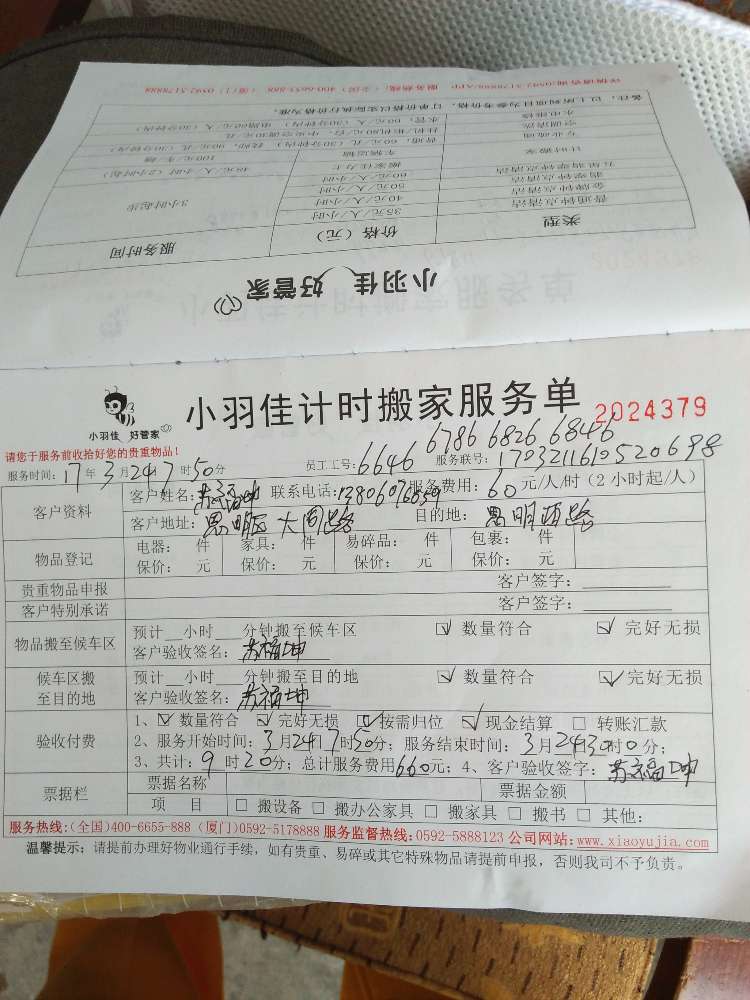 详情请咨询:0592-5178888/APP 服务热线:(全国)400-6655-888 (厦门)0592-5178888
小羽佳 好管家
类型 价格(元) 服务时间
普通钟点清洁 35元/人/小时 3小时起步
金牌钟点清洁 40元/人/小时
翡翠钟点清洁 50元/人/小时
60元/人/小时
计时搬家 搬家佳力士 48元/人/小时(2小时起)
车辆运输 100元/车/趟
专业疏通
空调清洗
水电维修 水管,60元/人(30分钟内)
备注:以上所列项目为参考价格,订单价格以实际执行价格为准。
小羽佳 好管家
小羽佳计时搬家服务单 2024379
请您于服务前收拾好您的贵重物品!
6786 6826 6846
服务时间:17年3月24日7时50分 员工工号:6646 服务联号:1703211610520698
客户资料 客户姓名:苏福坤 联系电话:13806076859 服务费用:60元/人/时(2小时起/人)
客户地址:思明区大同路 目的地:思明西路
物品登记 电器: 件 家具: 件 易碎品: 件 包裹: 件
保价: 元 保价: 元 保价: 元 保价: 元
贵重物品申报 客户签字:
客户特别承诺 客户签字:
物品搬至候车区 预计__小时___分钟搬至候车区 ☑ 数量符合 ☑ 完好无损
客户验收签名:苏福坤
候车区搬至目的地 预计__小时___分钟搬至目的地 ☑ 数量符合 ☑ 完好无损
客户验收签名:苏福坤
验收付费 1、☑ 数量符合 ☑ 完好无损 ☑ 按需归位 ☑ 现金结算 □ 转账汇款
2、服务开始时间:3月24日7时50分;服务结束时间:3月24日 时0分;
3、共计:9时20分;总计服务费用660元;4、客户验收签字:苏福坤
票据栏 票据名称 票据金额
项 目 □ 搬设备 □ 搬办公家具 □ 搬家具 □ 搬书 □ 其他:
服务热线:(全国)400-6655-888 (厦门)0592-5178888 服务监督热线:0592-5888123 公司网站:www.xiaoyujia.com
温馨提示:请提前办理好物业通行手续,如有贵重、易碎或其它特殊物品请提前申报,否则我司不予负责。